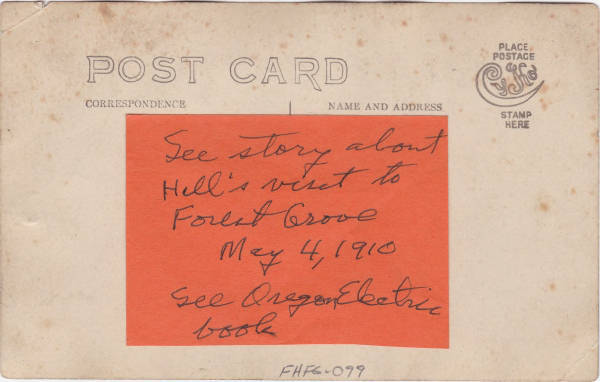 POST CARD
PLACE
POSTAGE
STAMP
HERE
CORRESPONDENCE
NAME AND ADDRESS
See story about
Hill's visit to
Forest Grove
May 4, 1910
See Oregon Electric
book
FHFG-099